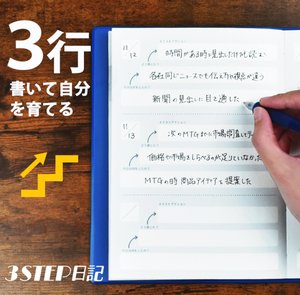 3行
書いて自分
を育てる
11
12
時間がある時に見出しだけでも読む
各社同じニュースでも伝え方や視点が違う
新聞の見出しに目を通した
11
13
次のMTGまでに市場調査
価格や市場をしらべるのが足りていなかった
MTGの時 商品アイデアを提案した
3STEP日記